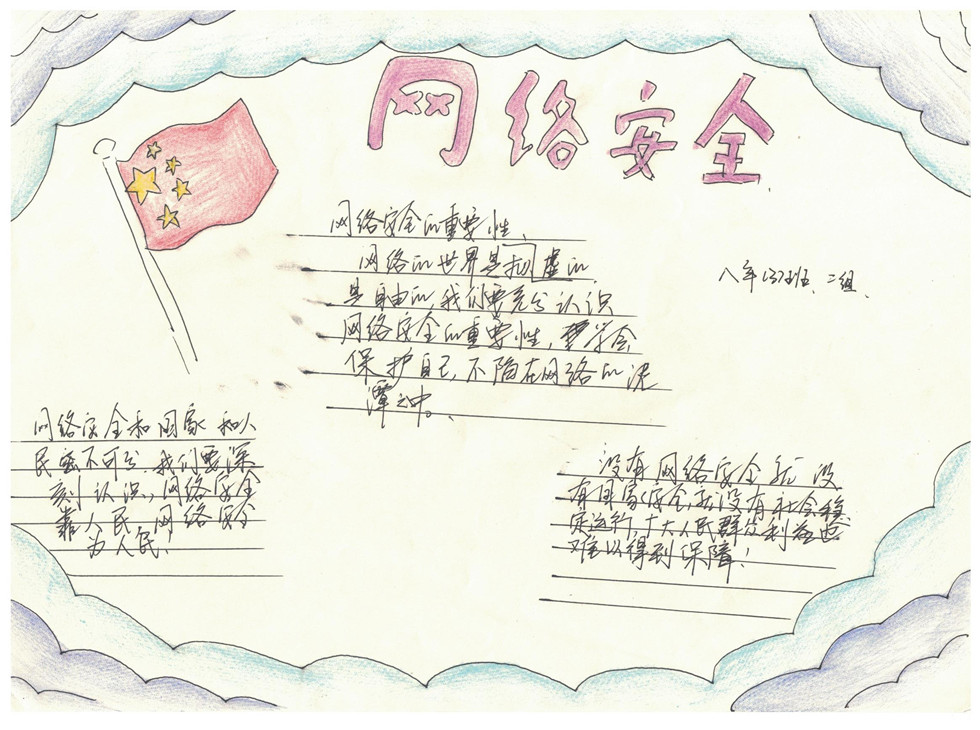 网络安全
网络安全的重要性、
网络的世界是虚的
是自由的,我们要充分认识
网络安全的重要性,学会
保护自己,不陷在网络的泥
潭之中。
八年(3)班、二组、
网络安全和国家和人
民密不可分.我们要深
刻认识,网络安全
靠人民,网络安全
为人民!
没有网络安全就没
有国家安全,就没有社会稳
定运行,广大人民群众利益也
难以得到保障!